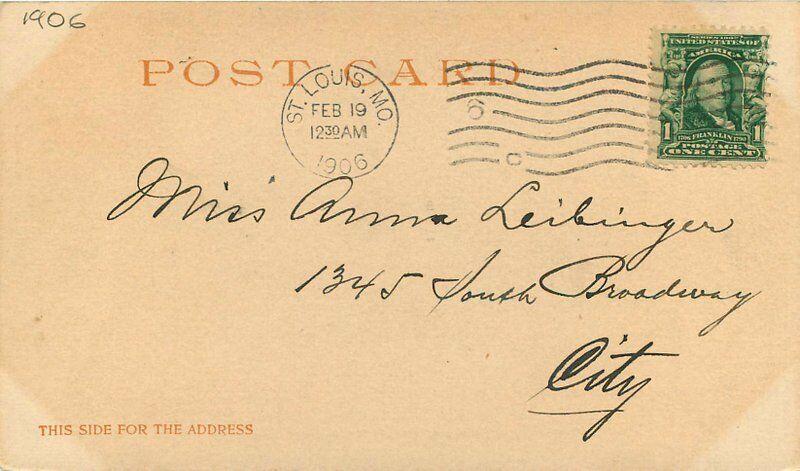 1906
POST CARD
ST. LOUIS, MO.
FEB 19
12 30 AM
1906
6
SERIES 1902
UNITED STATES OF
AMERICA
1 1
1706 FRANKLIN 1790
POSTAGE
ONE CENT
Miss Anna Leibinger
1345 South Broadway
City
THIS SIDE FOR THE ADDRESS